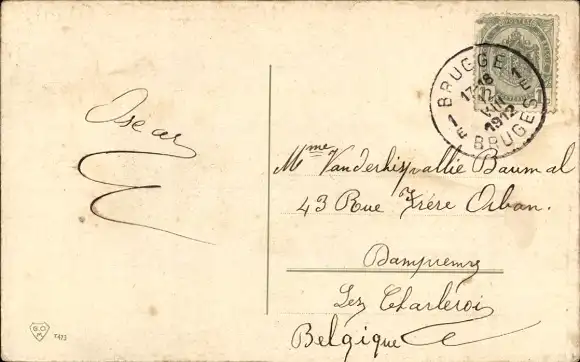 Oscar
BRUGGE 1E
17-18
XII
1912
1E BRUGES
Mme Vanderhispallie Baumal
43 Rue Frère Orban.
Dampremy
Lez Charleroi
Belgique
7473